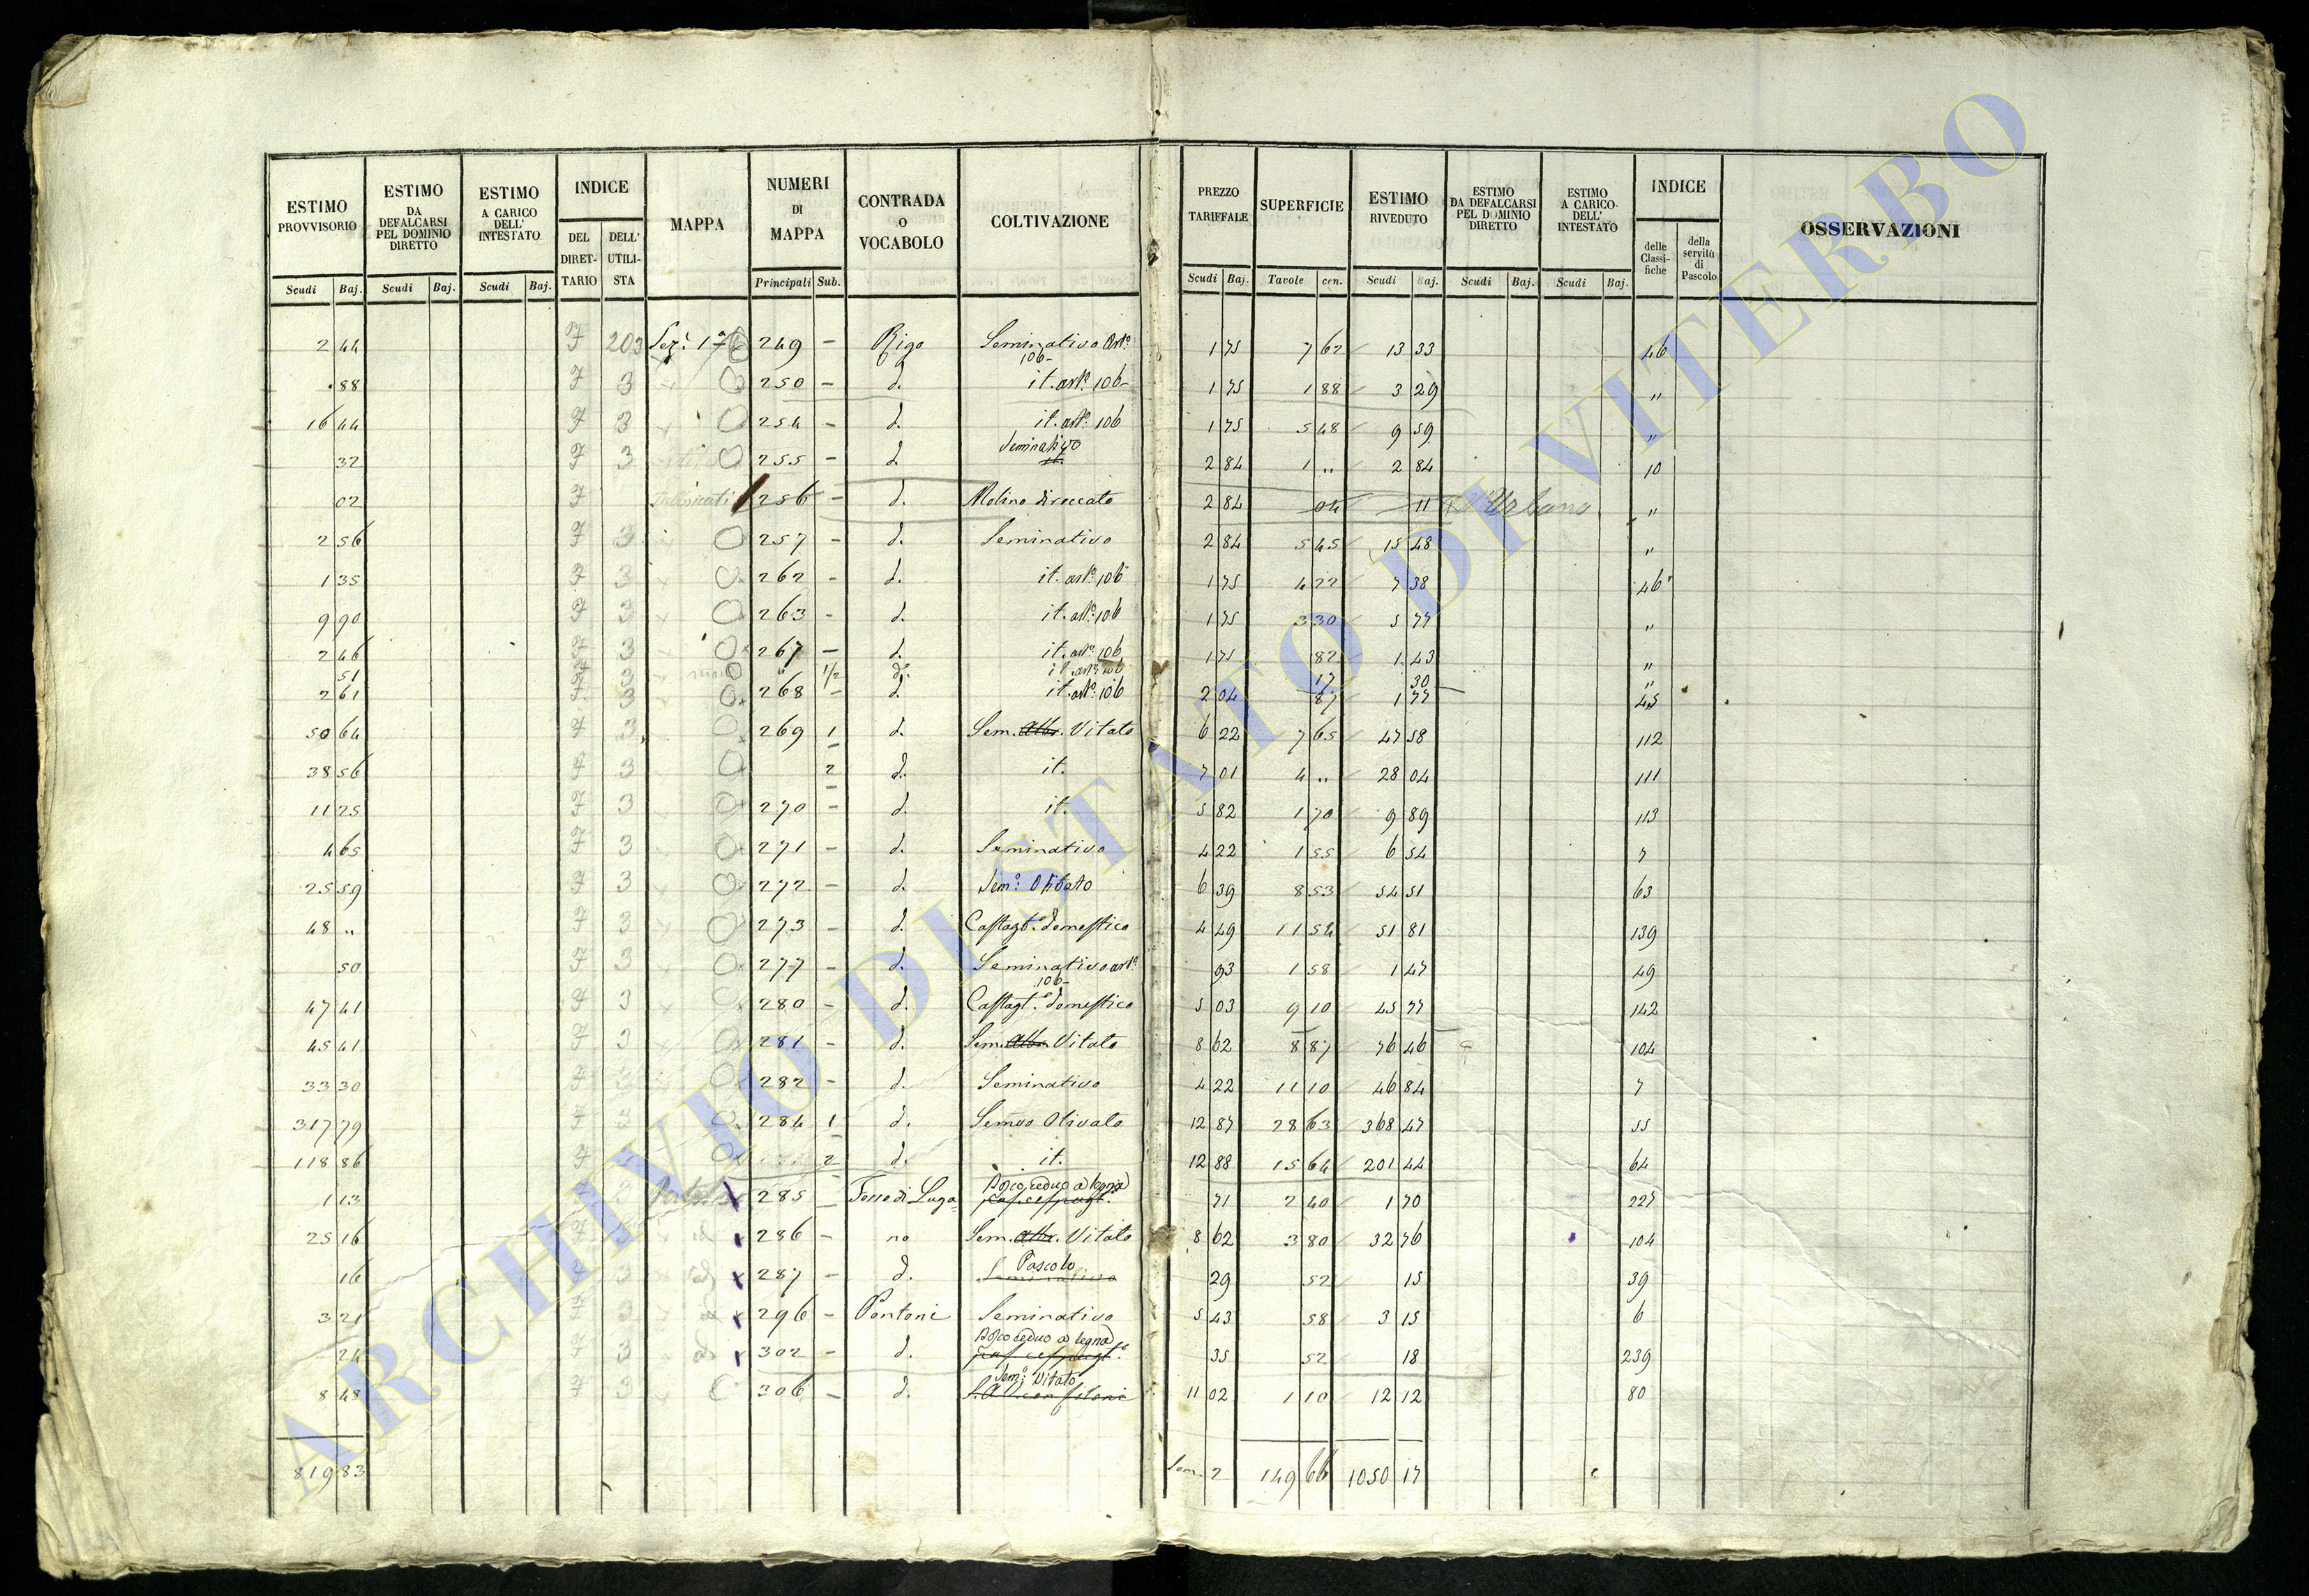 ESTIMO PROVVISORIO | ESTIMO DA DEFALCARSI PEL DOMINIO DIRETTO | ESTIMO A CARICO DELL' INTESTATO | INDICE DEL DIRETTARIO | DELL' UTILISTA | MAPPA | NUMERI DI MAPPA | CONTRADA o VOCABOLO | COLTIVAZIONE | PREZZO TARIFFALE | SUPERFICIE | ESTIMO RIVEDUTO | ESTIMO DA DEFALCARSI PEL DOMINIO DIRETTO | ESTIMO A CARICO DELL' INTESTATO | INDICE delle Classifiche | della servitù di Pascolo | OSSERVAZIONI
Scudi Baj. | Scudi Baj. | Scudi Baj. | Principali Sub. | Scudi Baj. | Tavole cen. | Scudi Baj. | Scudi Baj. | Scudi Baj.
2 44 203 Sez: 1ª 249 – Rigo Seminativo Artº 106– 1 75 7 62 13 33 46
88 3 250 – d. it. artº 106– 1 75 1 88 3 29 "
16 44 3 254 – d. it. artº 106 1 75 5 48 9 59 "
32 3 255 – d. Seminativo 2 84 1 " 2 84 10
02 256 – d. Molino diroccato 2 84 04 11 Urbano "
2 56 3 257 – d. Seminativo 2 84 5 45 15 48 "
1 35 3 262 – d. it. artº 106 1 75 4 22 7 38 46
9 90 3 263 – d. it. artº 106 1 75 3 30 5 77 "
2 46 3 267 – d. it. artº 106 1 75 82 1 43 "
51 3 " 1/2 dº it. artº 106 17 30 "
2 61 3 268 – d. it. artº 106 2 04 87 1 77 45
50 64 3 269 1 d. Sem. Alb. Vitato 6 22 7 65 47 58 112
38 56 3 2 d. it. 7 01 4 " 28 04 111
11 25 3 270 – d. it. 5 82 1 70 9 89 113
4 65 3 271 – d. Seminativo 4 22 1 55 6 54 7
25 59 3 272 – d. Semº: Olivato 6 39 8 53 54 51 63
48 " 3 273 – d. Castagtº domestico 4 49 11 54 51 81 139
50 3 277 – d. Seminativo artº 106– 93 1 58 1 47 49
47 41 3 280 – d. Castagtº domestico 5 03 9 10 45 77 142
45 41 3 281 – d. Sem. Alb. Vitato 8 62 8 87 76 46 104
33 30 282 – d. Seminativo 4 22 11 10 46 84 7
317 79 3 284 1 d. Semvo Olivato 12 87 28 63 368 47 55
118 86 2 d. it. 12 88 15 64 201 44 64
1 13 285 Bosco ceduo a legna 71 2 40 1 70 227
25 16 286 – Sem. Alb. Vitato 8 62 3 80 32 76 104
16 3 287 – d. Pascolo Seminativo 29 52 15 39
3 21 3 296 – Pontoni Seminativo 5 43 58 3 15 6
24 3 302 – d. Bosco ceduo a legna 35 52 18 239
8 48 3 306 – d. Semº: Vitato 11 02 1 10 12 12 80
819 83 149 66 1050 17
ARCHIVIO DI STATO DI VITERBO